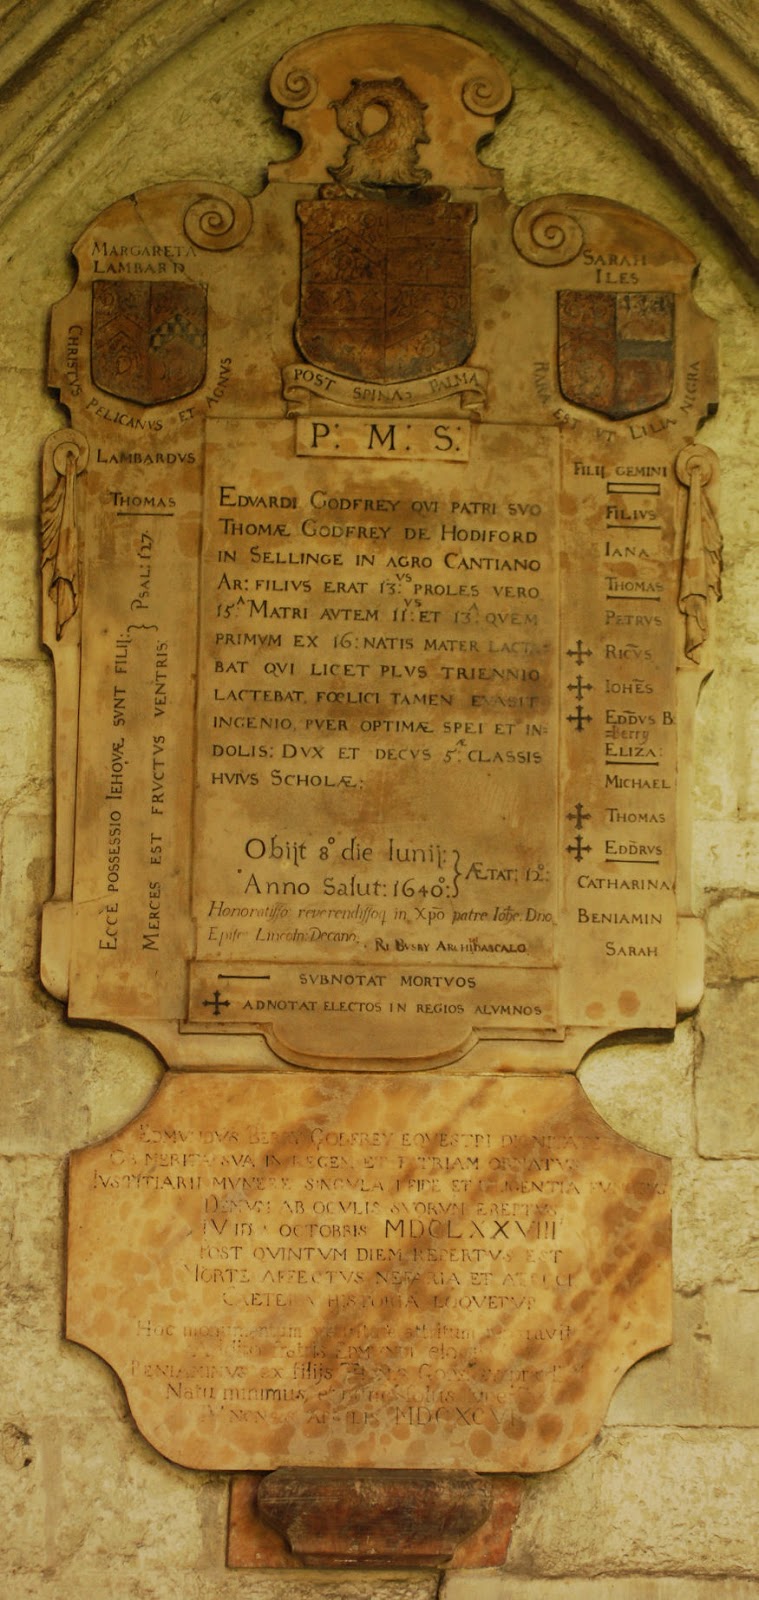 MARGARETA
LAMBARD
CHRISTVS PELICANVS ET AGNVS
SARAH
ILES
RARA EST VT LILIA NIGRA
POST SPINAS PALMA
P: M: S:
LAMBARDVS
THOMAS
ECCE POSSESSIO IEHOVÆ SVNT FILIJ:
MERCES EST FRVCTVS VENTRIS
PSAL: 127.
EDVARDI GODFREY QVI PATRI SVO
THOMÆ GODFREY DE HODIFORD
IN SELLINGE IN AGRO CANTIANO
AR: FILIVS ERAT 13:VS PROLES VERO
15:A MATRI AVTEM 11:VS ET 13:A QVEM
PRIMVM EX 16: NATIS MATER LACTA-
BAT QVI LICET PLVS TRIENNIO
LACTEBAT, FŒLICI TAMEN EVASIT
INGENIO, PVER OPTIMÆ SPEI ET IN-
DOLIS: DVX ET DECVS 5:Æ CLASSIS
HVIVS SCHOLÆ:
Obijt 8° die Iunij:
Anno Salut: 1640°:
ÆTAT: 12°:
Honoratisso reverendissoq in Xpō patre Iohe. Dno
Episc Lincoln: Decano, RI BUSBY ARCHIDASCALO
FILIJ GEMINI
FILIVS
IANA
THOMAS
PETRVS
RICVS
IOHES
EDDVS B:
=Berry
ELIZA:
MICHAEL
THOMAS
EDDRVS
CATHARINA
BENIAMIN
SARAH
SVBNOTAT MORTVOS
ADNOTAT ELECTOS IN REGIOS ALVMNOS
EDMVNDVS BERRY GODFREY EQVESTRI DIGNITATE
OB MERITA SVA IN REGEM ET PATRIAM ORNATVS
IVSTITIARII MVNERE SINGVLA FIDE ET DILIGENTIA
DEMVM AB OCVLIS SVORVM EREPTVS
IV ID OCTOBRIS MDCLXXVIII
POST QVINTVM DIEM REPERTVS EST
MORTE AFFECTVS NEFARIA ET ATROCI
CAETERA HISTORIA LOQVETVR
Hoc monumentum vetustate attritum reparavit
Addito fratris EDMVNDI elogio
BENIAMINVS ex filijs THOMÆ
Natu minimus, et
NONAS APRILIS MDCXCVI